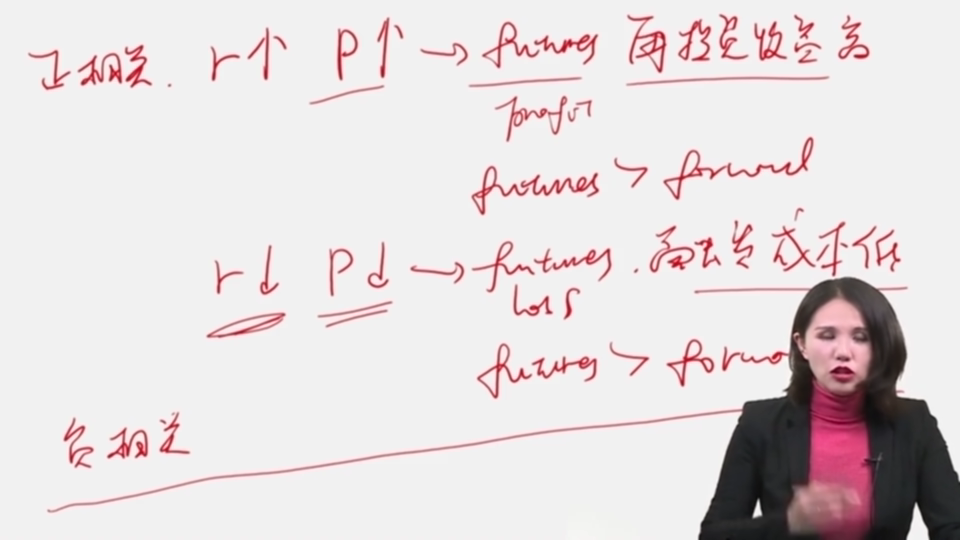 正相关. r↑ P↑ → futures 再投资收益高
profit
futures > forward
r↓ P↓ → futures. 再投资成本低
loss
futures > forwa
负相关